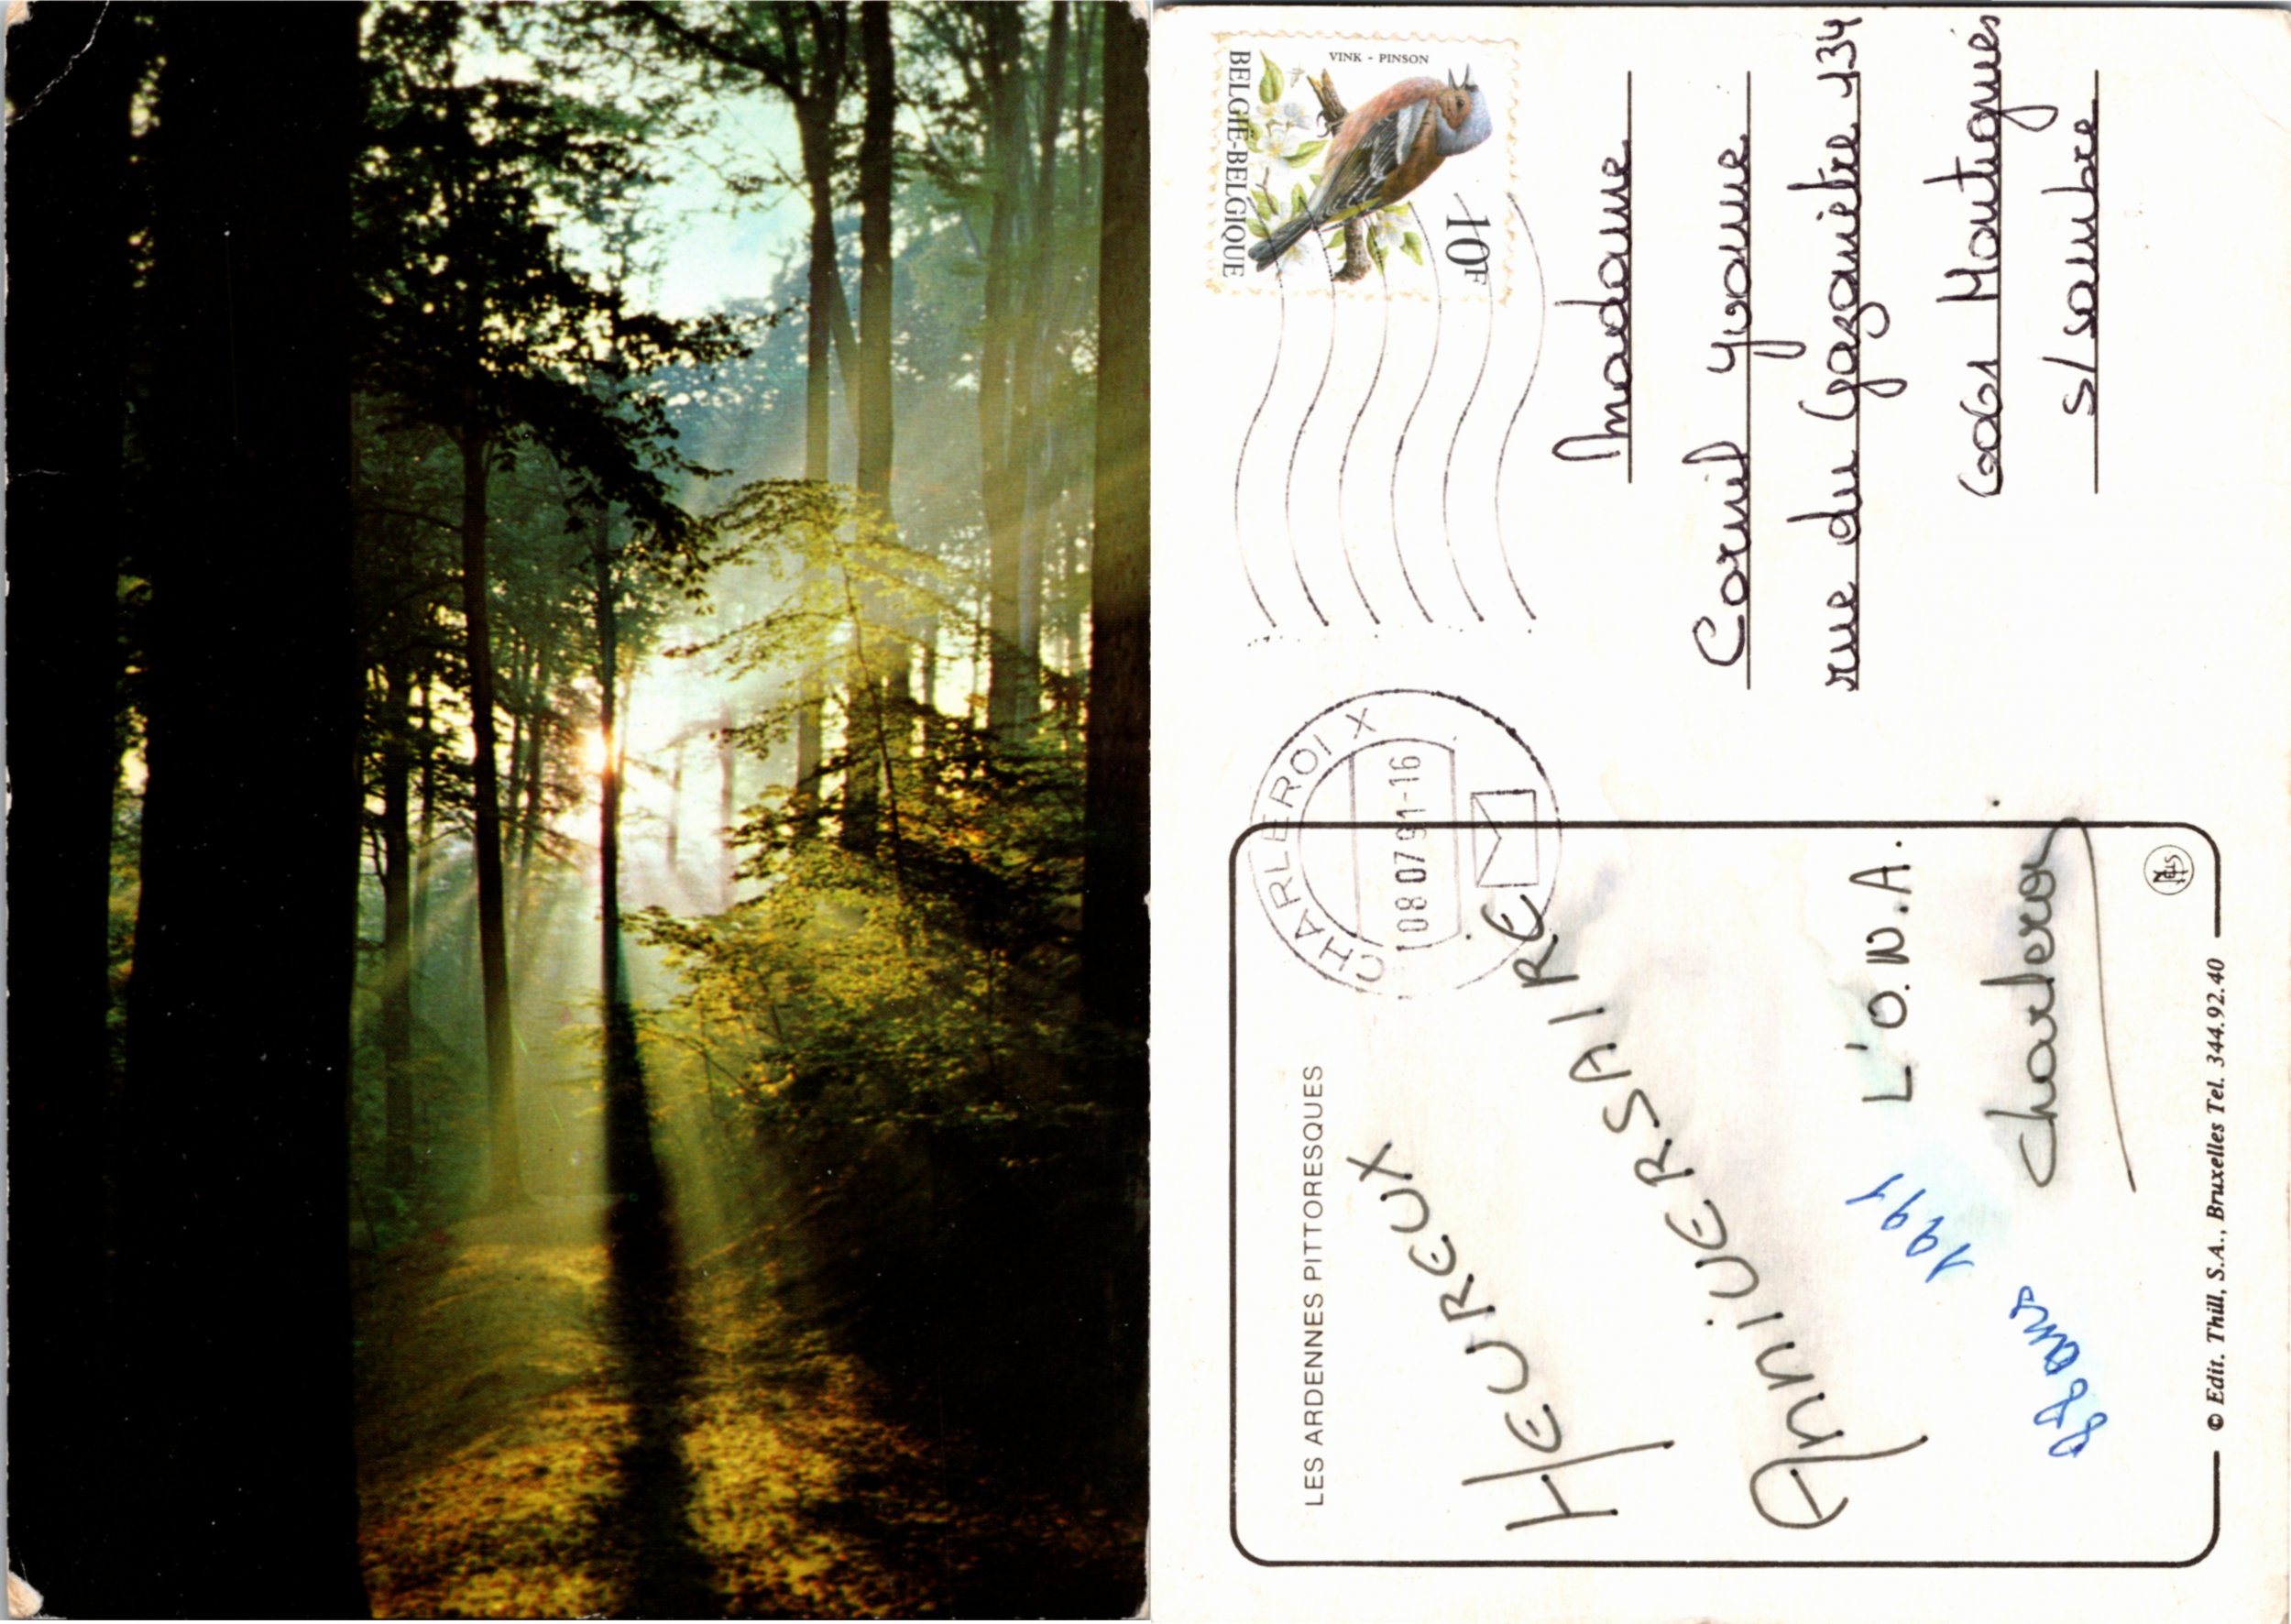 LES ARDENNES PITTORESQUES
HEUREUX
ANNIVERSAIRE
L'O.N.A.
Charleroi
1991
© Edit. Thill, S.A., Bruxelles Tel. 344.92.40
CHARLEROI X
08 07 91-16
VINK - PINSON
BELGIË-BELGIQUE
10F
Madame
Cornil Yvonne
rue du Gazomètre 134
6061 Montignies
s/Sambre